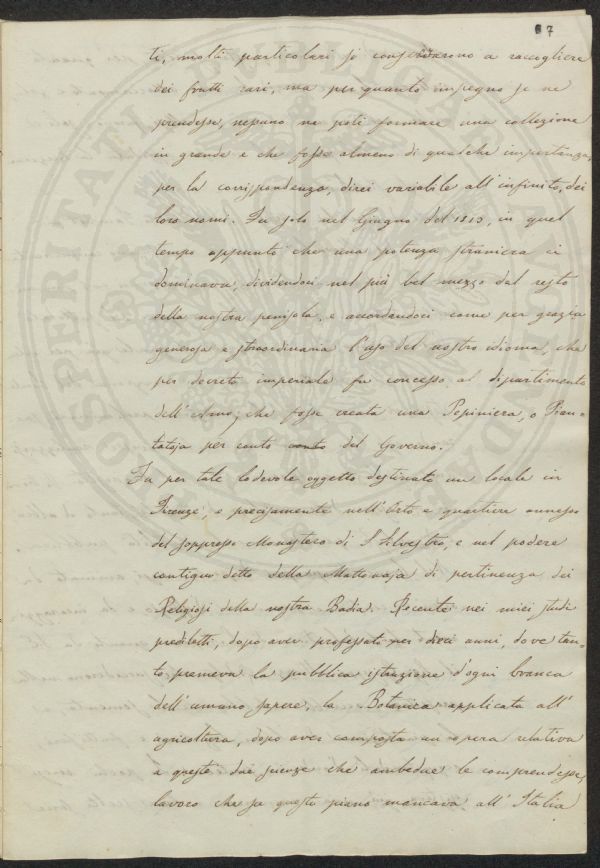 87
ti, molti particolari si consacrarono a raccogliere
dei frutti rari, ma per quanto impegno se ne
prendesse, nessuno ne potè formare una collezione
in grande e che fosse almeno di qualche importanza,
per la corrispondenza, direi variabile all'infinito, dei
loro nomi. Fu solo nel Giugno del 1813, in quel
tempo appunto che una potenza straniera ci
dominava, dividendoci nel più bel mezzo dal resto
della nostra penisola, e accordandoci come per grazia
generosa e straordinaria l'uso del nostro idioma, che
per decreto imperiale fu concesso al dipartimento
dell'Arno, che fosse creata una Pepiniera, o Pian-
tatoja per conto conto del Governo.
Fu per tale lodevole oggetto destinato un locale in
Firenze, e precisamente nell'Orto e quartiere annesso
del soppresso Monastero di S. Silvestro, e nel podere
contiguo detto della Mattonaja di pertinenza dei
Religiosi della nostra Badia. Docente nei miei studi
prediletti, dopo aver professato per dieci anni, dove tan-
to premeva la pubblica istruzione d'ogni branca
dell'umano sapere, la Botanica applicata all'
agricoltura, dopo aver composta un opera relativa
a queste due scienze che ambedue le comprendesse,
lavoro che su questo piano mancava all'Italia